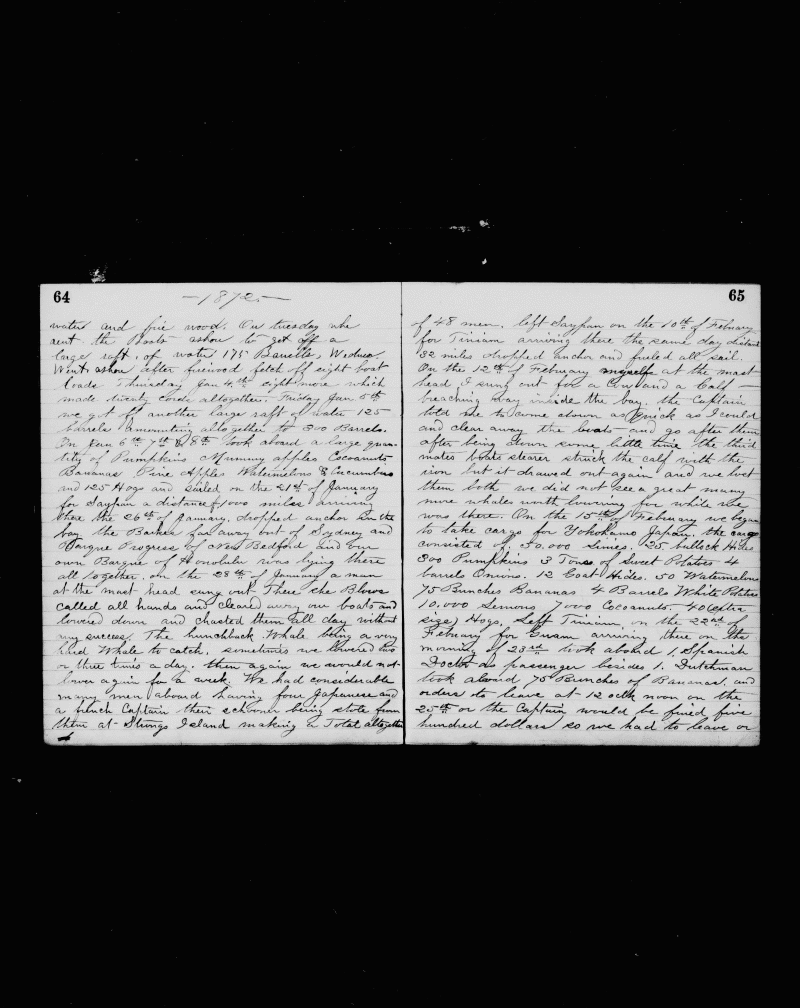 64
-1872-
water and fire wood. On tuesday we
sent the Boats ashore to get off a
large raft of water 175 Barrells, Wednes.
Went ashore after firewood fetch off eight boat
loads Thursday Jan 4th eight more which
made twenty cords altogether. Friday Jan 5th
we got off another large raft of water 125
barrels amounting altogether to 300 Barrels.
On Jan 6th 7th & 8th took aboard a large quan-
tity of Pumpkins Mummy apples Cocoanuts
Bananas Pine Apples Watermelons & Cucumbers
and 125 Hogs and sailed on the 21st of January
for Saypan a distance of 1000 miles arriving
there the 26th of January. dropped anchor in the
bay the Barken far away out of Sydney and
Barque Progress of New Bedford and our
own Barque of Honolulu was lying there
all together. on the 28th of January a man
at the mast head sung out There she Blows
called all hands and cleared away our boats and
lowered down and chasted them all day without
any success. The hunchback Whale being a very
hard Whale to catch, sometimes we lowered two
or three times a day. then again we would not
lower again for a week. We had considerable
many men aboard having four Japanese and
a french Captain their schooner being stole from
them at Strongs Island making a Total altogether
65
of 48 men. left Saypan on the 10th of Febuary
for Tinian arriving there the same day distant
32 miles dropped anchor and furled all sail.
On the 12th of February myself at the mast
head I sung out for a Cow and a Calf -
breaching way inside the bay. the Captain
told me to come down as quick as I could
and clear away the boats and go after them
after being down some little time the third
mates boats stearer struck the calf with the
iron but it drawed out again and we lost
them both we did not see a great many
more whales worth lowering for while we
was there. On the 15th of February we began
to take cargo for Yokohamo Japan. the cargo
consisted of 30,000 Limes. 125 bullock Hides
300 Pumpkins 3 Tons of Sweet Potatos 4
barrels Onions. 12 Goat Hides. 50 Watermelons
75 Bunches Bananas 4 Barrels White Potatos
10,000 Lemons 7000 Cocoanuts. 40 (extra
size) Hogs, Left Tinian on the 22nd of
Febuary for Guam arriving there on the
morning of 23rd took aboard 1, Spanish
Doctor as passenger besides 1. Dutchman
took aboard 75 Bunches of Bananas. and
orders to leave at 12 oclk noon on the
25th or the Captain would be fined five
hundred dollars so we had to leave or